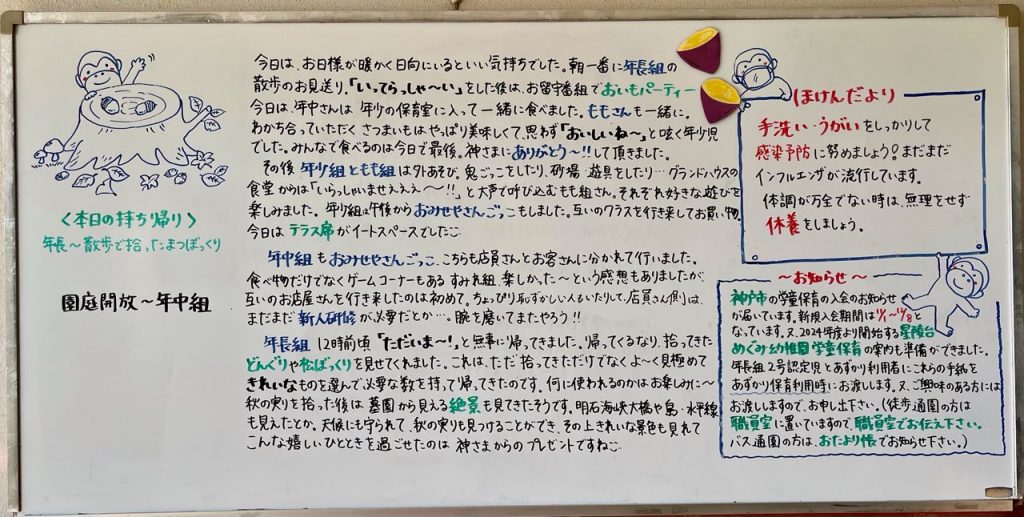 <本日の持ち帰り>
年長〜散歩で拾ったまつぼっくり
園庭開放〜年中組
今日は、お日様が暖かく日向にいるといい気持ちでした。朝一番に年長組の
散歩のお見送り。「いってらっしゃ〜い」をした後は、お留守番組でおいもパーティー
今日は、年中さんは年少の保育室に入って一緒に食べました。ももさんも一緒に。
わかち合っていただくさつまいもはやっぱり美味しくて、思わず「おいしいね〜」と呟く年少児
でした。みんなで食べるのは今日で最後。神さまにありがとう〜!!して頂きました。
その後年少組ともも組は外あそび。鬼ごっこをしたり、砂場・遊具をしたり…グランドハウスの
食堂からは「いらっしゃいませえええ〜!!」と大声で呼び込むもも組さん。それぞれ好きな遊びを
楽しみました。年少組は午後からおみせやさんごっこもしました。互いのクラスを行き来してお買い物。
今日はテラス席がイートスペースでした
年中組もおみせやさんごっこ。こちらも店員さんとお客さんに分かれて行いました。
食べ物だけでなくゲームコーナーもあるすみれ組。楽しかった〜という感想もありましたが、
互いのお店屋さんを行き来したのは初めて。ちょっぴり恥ずかしい人もいたりして、店員さん側は、
まだまだ新人研修が必要だとか…。腕を磨いてまたやろう!!
年長組 12時前頃「ただいま〜!」と無事に帰ってきました。帰ってくるなり、拾ってきた
どんぐりや松ぼっくりを見せてくれました。これは、ただ拾ってきただけでなくよ〜く見極めて
きれいなものを選んで必要な数を持って帰ってきたのです。何に使われるのかはお楽しみに〜
秋の実りを拾った後は墓園から見える絶景も見てきたそうです。明石海峡大橋や島・水平線
も見えたとか。天候にも守られて、秋の実りも見つけることができ、その上きれいな景色も見れて
こんな嬉しいひとときを過ごせたのは神さまからのプレゼントですね
ほけんだより
手洗い・うがいをしっかりして
感染予防に努めましょう?まだまだ
インフルエンザが流行しています。
体調が万全でない時は、無理をせず
休養をしましょう。
〜お知らせ〜
神戸市の学童保育の入会のお知らせ
が届いています。新規入会期間は
なっています。又、2024年度より開始する星陵台
めぐみ幼稚園学童保育の案内も準備ができました。
年長組2号認定児とあずかり利用者にこれらの手紙を
あずかり保育利用時にお渡しします。又、ご興味のある方には
お渡ししますので、お申し出下さい。(徒歩通園の方は
職員室に置いていますので、職員室でお伝え下さい。
バス通園の方は、おたより帳でお知らせ下さい。)